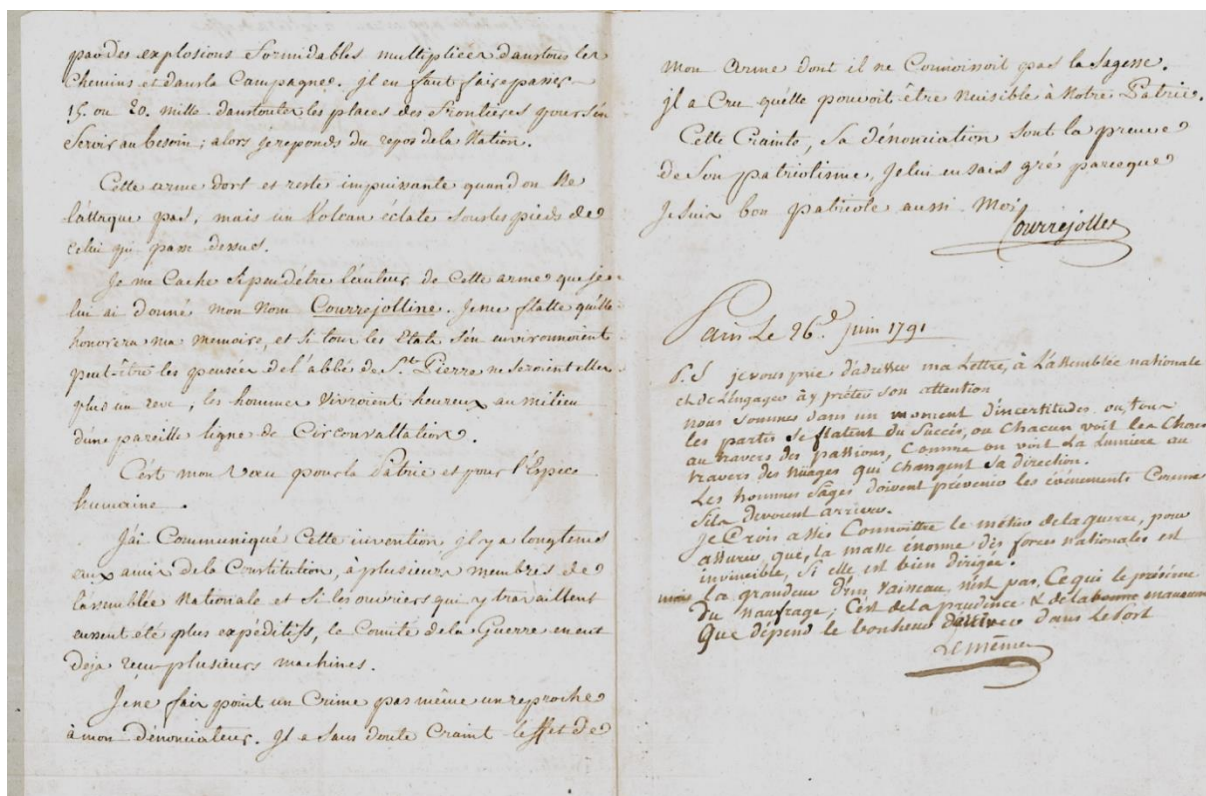 par des explosions formidables multipliées dans tous les
Chemins et dans la Campagne. Il en faut faire passer
15. ou 20. mille dans toutes les places des Frontières pour s'en
Servir au besoin; alors je reponds du repos de la Nation.
Cette arme dort et reste impuissante quand on ne
l'attaque pas, mais un Volcan éclate sous les pieds de
celui qui passe dessus.
Je me Cache si peu d'être l'auteur de Cette arme que je
lui ai donné mon Nom Courrejolline. Je me flatte qu'elle
honorera ma memoire, et si tous les Etats s'en environnoient
peut-être les pensées de l'abbé de St. Pierre ne seroient elles
plus un reve, les hommes vivroient heureux au milieu
d'une pareille ligne de Circonvallation.
C'est mon Vœu pour la Patrie et pour l'Espece
humaine.
J'ai Communiqué Cette invention il y a longtems
aux amis de la Constitution, à plusieurs membres de
l'assemblée Nationale et si les ouvriers qui y travaillent
eussent été plus expéditifs, le Comité de la Guerre en eut
deja reçu plusieurs machines.
Je ne fais point un Crime pas même un reproche
à mon dénonciateur. Il a sans doute Craint l'effet de
mon arme dont il ne Connoissoit pas la Sagesse.
il a Cru qu'elle pouvoit être Nuisible à Notre Patrie.
Cette Crainte, sa dénonciation sont la preuve
de son patriotisme, Je lui en sais gré parceque
Je suis bon patriote aussi Moi
Courrejolles
Paris Le 26.d juin 1791
P.S je vous prie d'adresser ma Lettre, à L'assemblée nationale
et de L'engager à y prêter son attention
nous sommes dans un moment d'incertitudes ou, tous
les partis se flatent du Succès, ou Chacun voit les Choses
au travers des passions, Comme on voit La Lumiere au
travers des nüages qui changent sa direction.
Les hommes Sages doivent prévenir les événements Comme
s'ils devoient arriver.
Je Crois assés Connoître le métier de la guerre, pour
assurer, que, la masse énorme des forces nationales est
invincible, si elle est bien dirigée.
mais La grandeur d'un Vaisseau, n'est pas, Ce qui le préserve
du naufrage; C'est de la prudence & de la bonne manœuvre
Que dépend le bonheur d'arriver dans Le Port
Le même